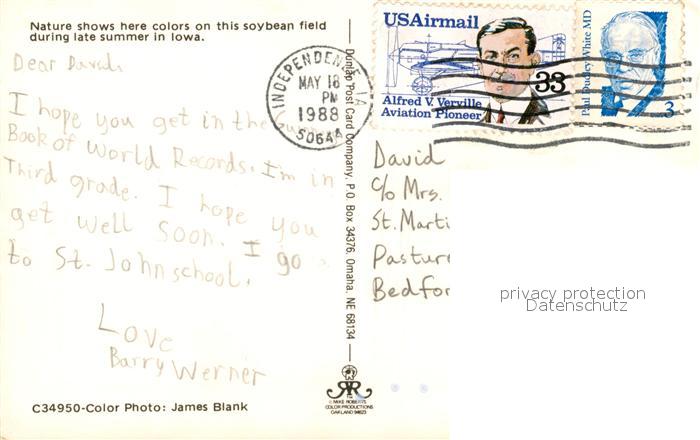 Nature shows here colors on this soybean field
during late summer in Iowa.
Dear David,
I hope you get in the
Book of World Records. I'm in
Third grade. I hope you
get well soon. I go
to St. John school.
Love
Barry Werner
C34950-Color Photo: James Blank
Dunlap Post Card Company, P.O. Box 34376, Omaha, NE 68134
INDEPENDENCE, IA
MAY 18
PM
1988
50644
USAirmail
33
Alfred V. Verville
Aviation Pioneer
Paul Dudley White MD
3
David
c/o Mrs.
St. Marti
Pastur
Bedfor
privacy protection
Datenschutz
© MIKE ROBERTS
COLOR PRODUCTIONS
OAKLAND 94623